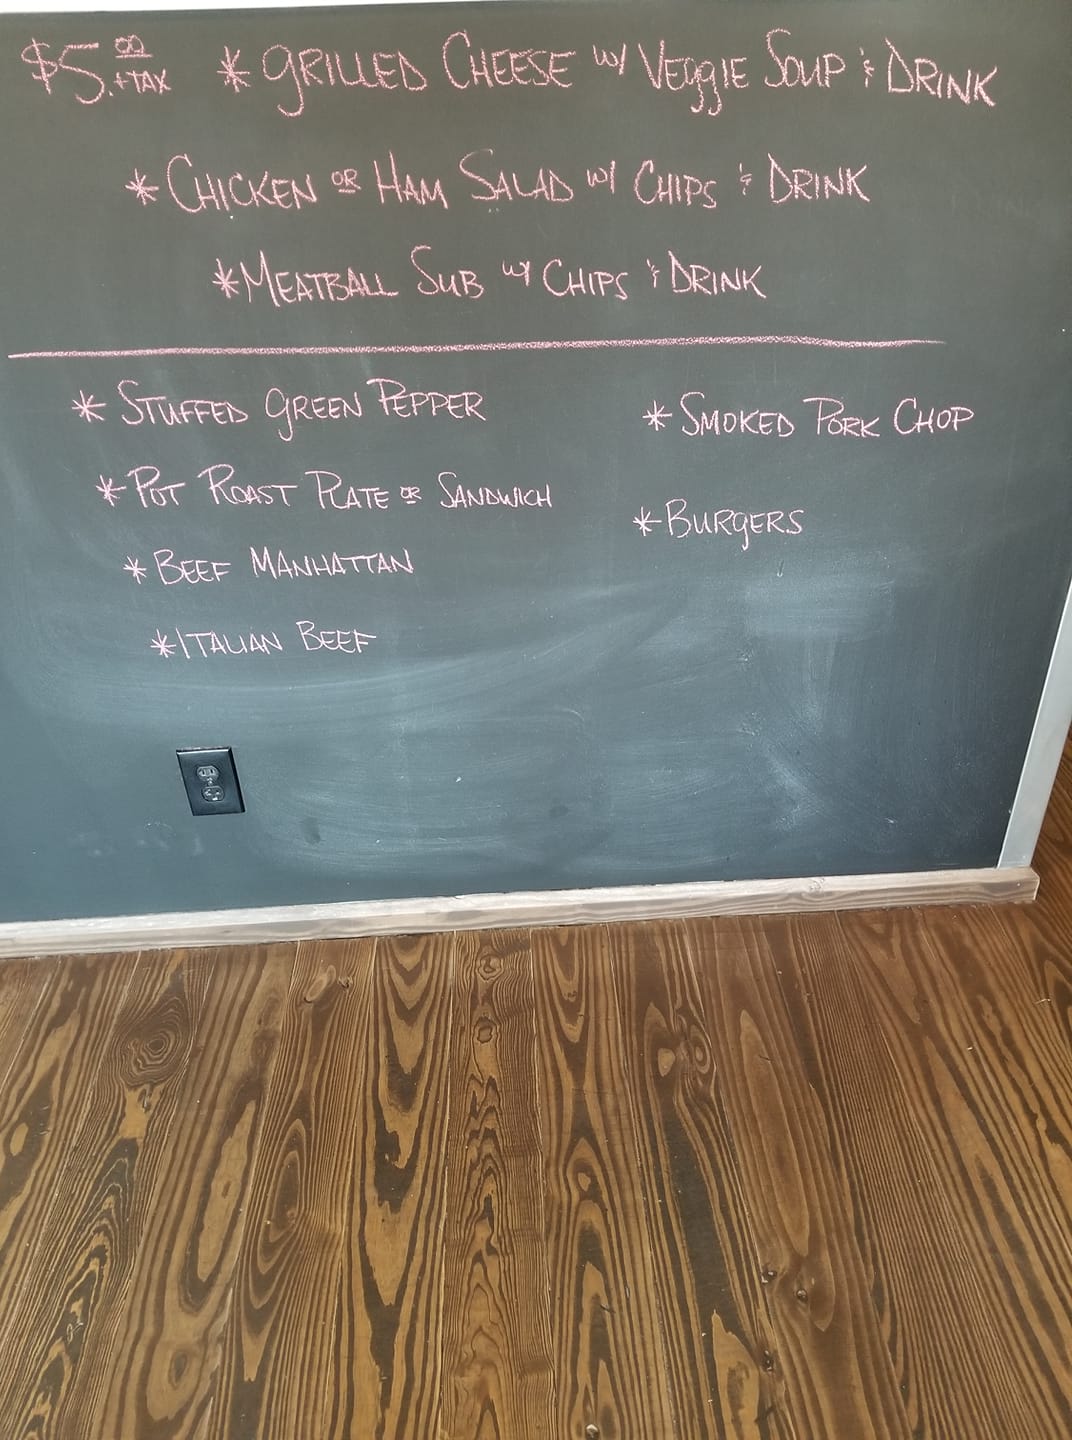 $5.00 +TAX * GRILLED CHEESE w/ VEGGIE SOUP & DRINK
* CHICKEN OR HAM SALAD w/ CHIPS & DRINK
* MEATBALL SUB w/ CHIPS & DRINK
* STUFFED GREEN PEPPER
* POT ROAST PLATE OR SANDWICH
* BEEF MANHATTAN
* ITALIAN BEEF
* SMOKED PORK CHOP
* BURGERS